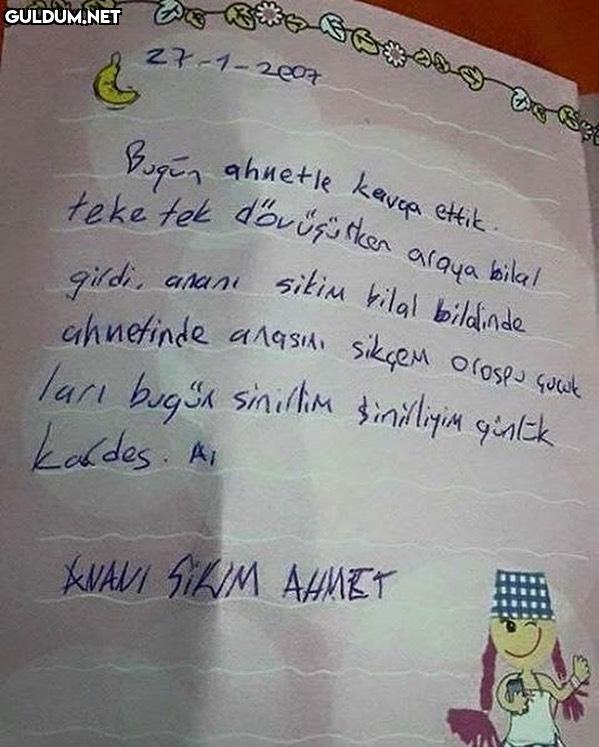 GULDUM.NET
27-1-2007
Bugün ahmetle kavga ettik.
teke tek dövüşürken araya bilal
girdi. ananı sikim bilal bildinde
ahmetinde anasını sikçem orospu çocuk
ları bugün sinirlim sinirliyim günlük
kardes. Aı
ANANI SİKİM AHMET